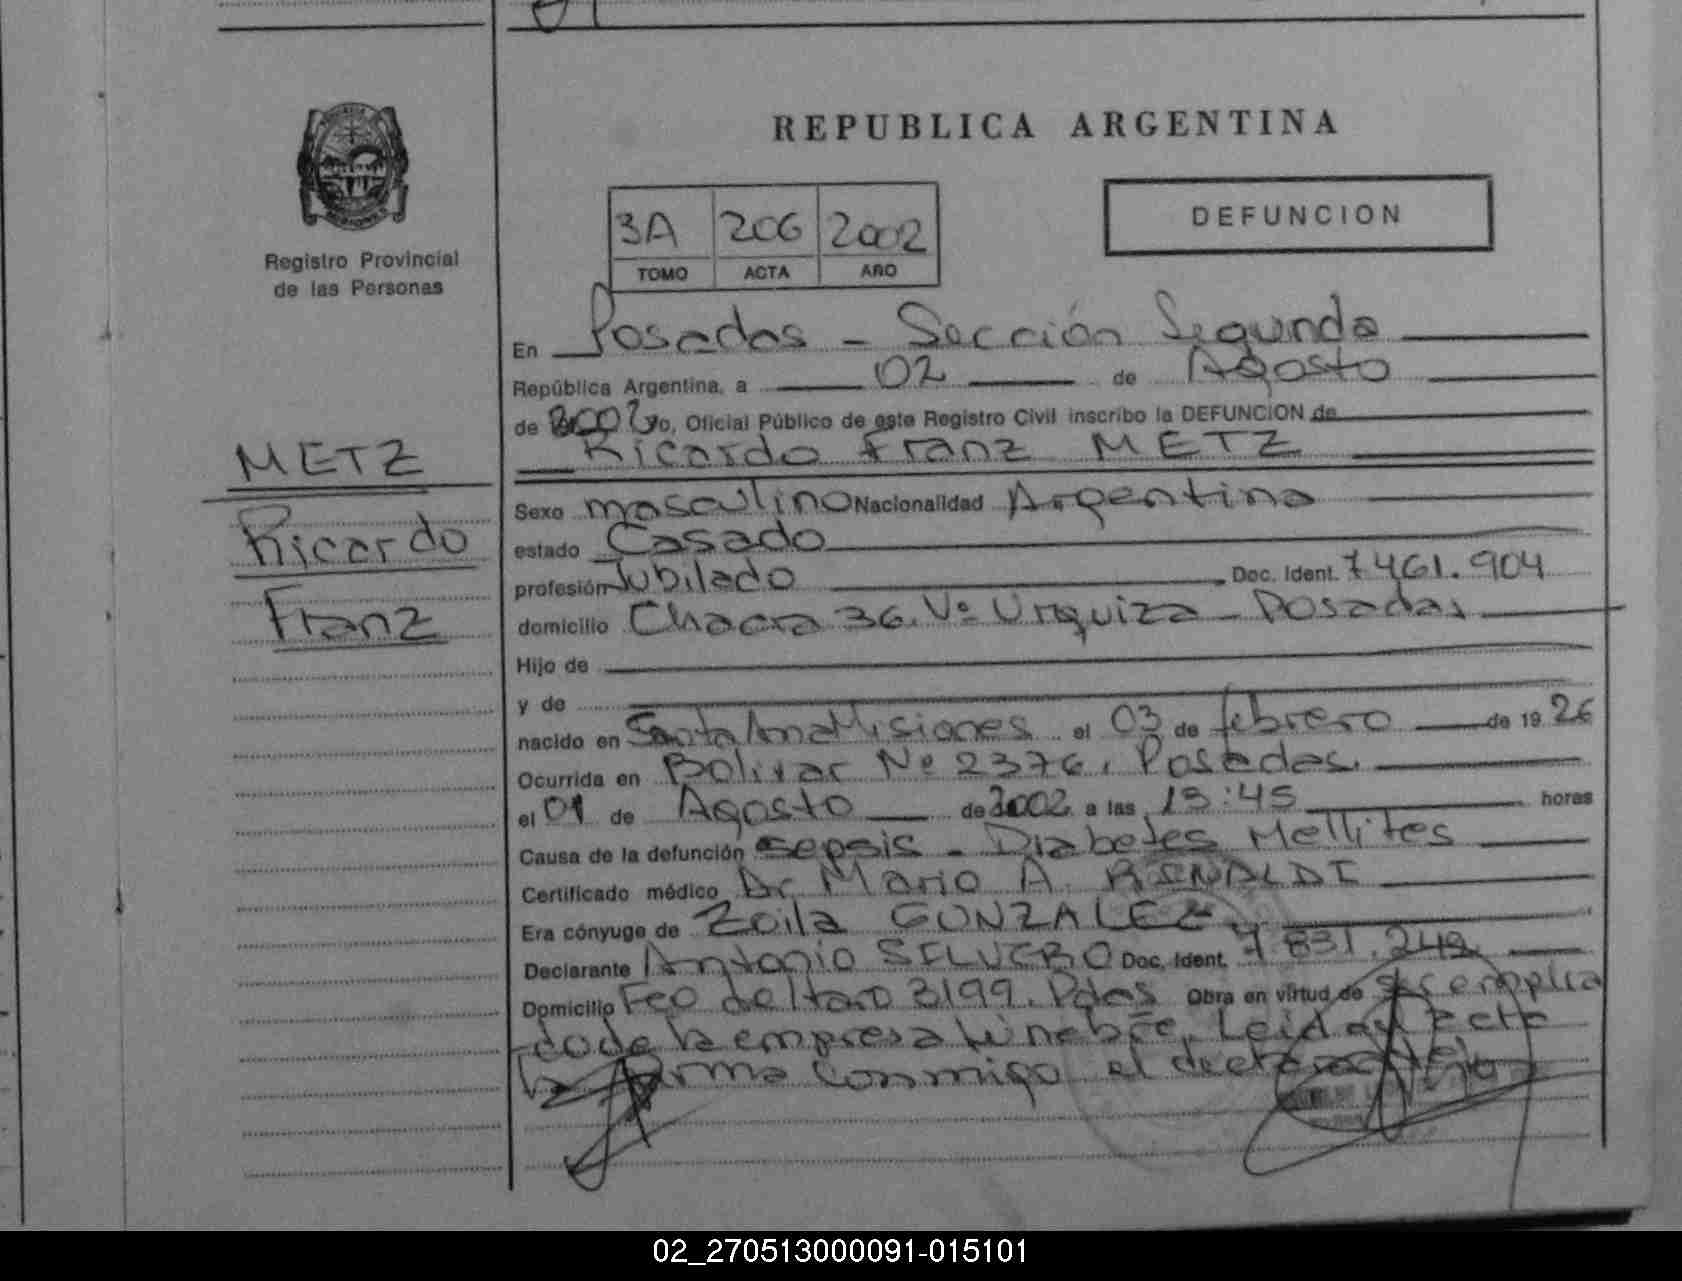 REPUBLICA ARGENTINA
3A 206 2002
TOMO ACTA AÑO
DEFUNCION
Registro Provincial
de las Personas
METZ
Ricardo
Franz
En Posadas - Sección Segunda
República Argentina, a 02 de Agosto
de 2002 yo, Oficial Público de este Registro Civil inscribo la DEFUNCION de
Ricardo Franz METZ
Sexo masculino Nacionalidad Argentina
estado Casado
profesión Jubilado Doc. Ident. 7461.904
domicilio Chacra 36. Vº Urquiza - Posadas
Hijo de
y de
nacido en Santa Ana Misiones el 03 de febrero de 1926
Ocurrida en Bolivar Nº 2376, Posadas.
el 01 de Agosto de 2002 a las 13:45 horas
Causa de la defunción sepsis - Diabetes Mellites
Certificado médico Dr Mario A. RINALDI
Era cónyuge de Zoila GONZALEZ
Declarante Antonio SILVERO Doc. Ident. 7 831.242
Domicilio Fco de Haro 3199. Pdas Obra en virtud de ser emplea
do de la empresa fúnebre. Leida el acta
la firma conmigo el declarante
02_270513000091-015101